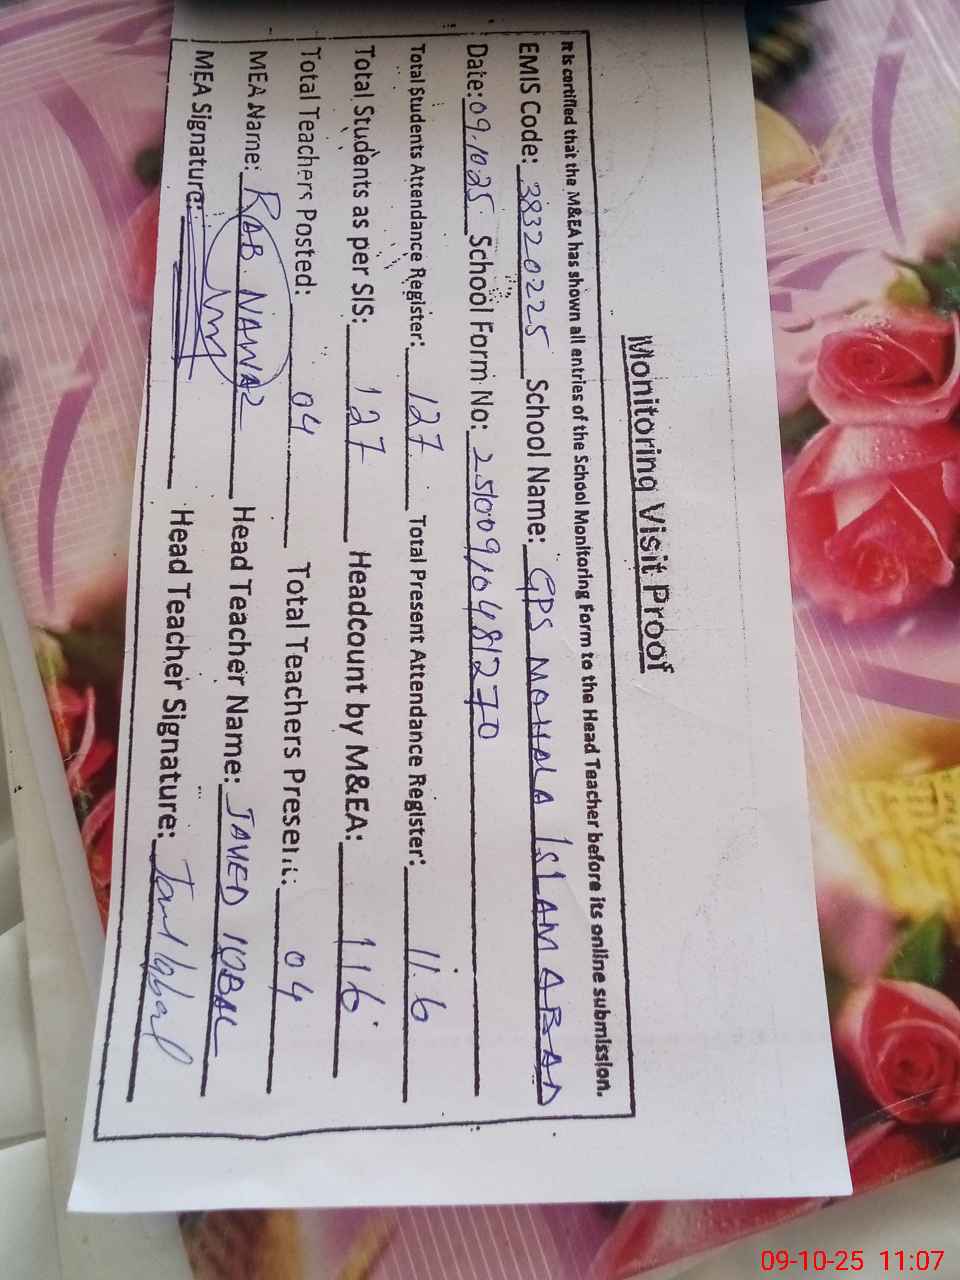 Monitoring Visit Proof
It is certified that the M&EA has shown all entries of the School Monitoring Form to the Head Teacher before its online submission.
EMIS Code: 38320225 School Name: GPS MOHALA ISLAMABAD
Date: 09.10.25 School Form No: 25100910481270
Total Students Attendance Register: 127 Total Present Attendance Register: 116
Total Students as per SIS: 127 Headcount by M&EA: 116
Total Teachers Posted: 04 Total Teachers Present: 04
MEA Name: RAB NAWAZ Head Teacher Name: JAVED IQBAL
MEA Signature: Head Teacher Signature: Javed Iqbal
09-10-25 11:07